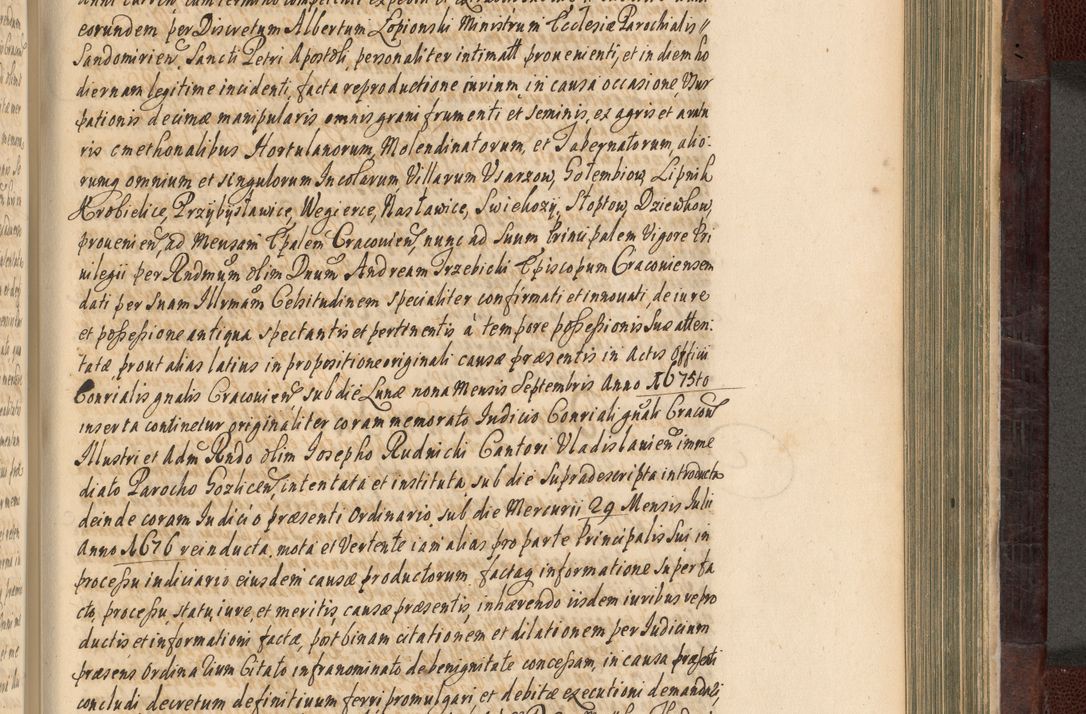 eorundem per Discretum Albertum Lopionski Ministrum Ecclesiæ Parochialis
Sandomirien̄ Sancti Petri Apostoli, personaliter intimatt provenienti, et in diem ho
diernam legitime incidenti, facta reproductione iurium, in causa occasione, Usur
pationis decimæ manipularis omnis grani frumenti et seminis, ex agris et aratu
ris cmethonalibus Hortulanorum, Molendinatorum, et Tabernatorum, alio:
rumq omnium et singulorum Incolarum, Villarum Usarzow, Gołembiow, Lipnik
Krobielice, Przybysławice, Wegierce, Rasławice, Swiehozy, Stoptow, Dziewkow,
provenien̄, ad Mensam Epalem Cracovien̄, nunc ad Suum Principalem Vigore Pri
uilegii per Rndmum olim Dnum Andream Trzebicki Episcopum Cracouiensem
dati per Suam Illrmam Celsitudinem specialiter confirmati et innouati, de iure
et possessione antiqua spectantis et pertinentis à tempore possessionis Suæ atten:
tatæ prout alias latius in propositione originali causæ præsentis in Actis Officii
Conrialis gnalis Cracovien̄ sub die Lunæ nona Mensis Septembris Anno 1675to
inserta continetur originaliter coram memorato Iudicio Conriali gnali Cracov̄
Illustri et Adm Rndo olim Iosepho Rudnicki Cantori Vladislavien̄ imme
diato Parocho Gozlicen̄, intentata et instituta sub die Supradescripta introducta
deinde coram Iudicio præsenti Ordinario, sub die Mercurii 29 Mensis Iulii
Anno 1676 reinducta, mota et Vertente iam alias pro parte Principalis Sui in
processu iudiciario eiusdem causæ productorum, factaq informatione super fa
cto, processu, statu, iure, et meritis, causæ præsentis, inhærendo iisdem iuribus repro
ductis et informationi factæ, post binam citationem et dilationem per Iudicium
præsens Ordinarium Citato infranominato de benignitate concessam, in causa præsenti
concludi decretum definitiuum ferri promulgari et debitæ executioni demandari,